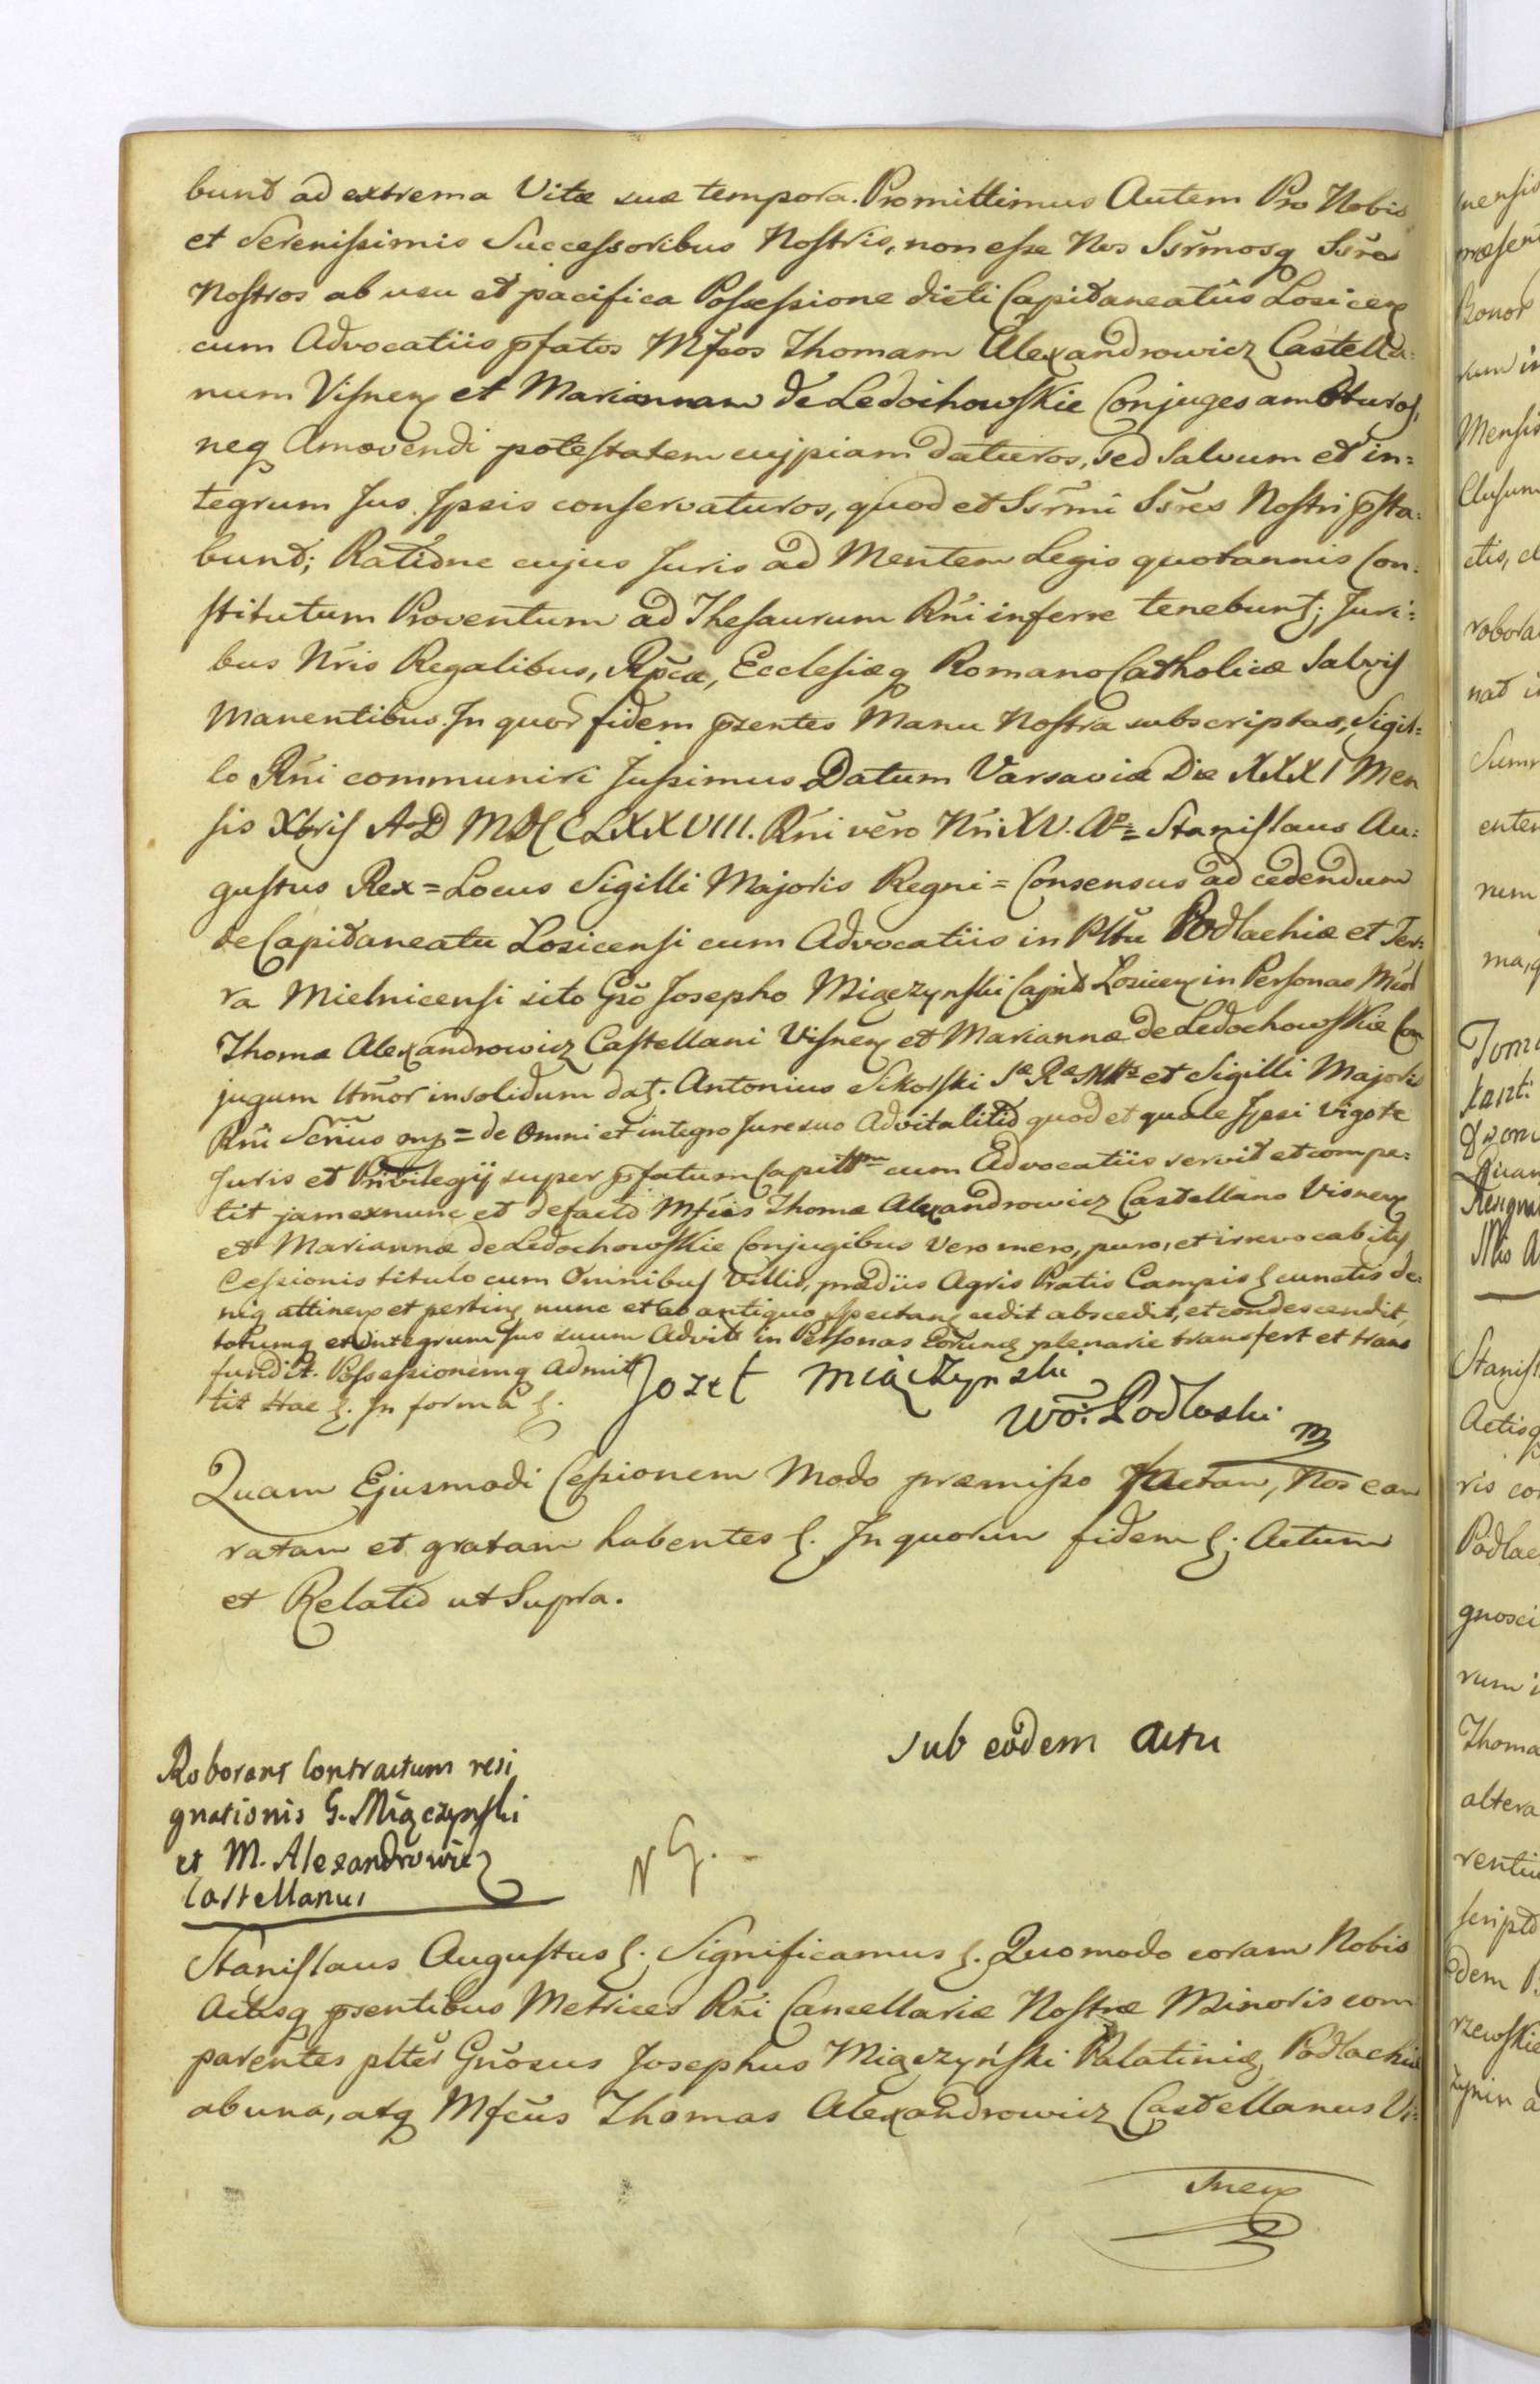 bunt ad extrema Vitæ suæ tempora. Promittimus Autem Pro Nobis
et Serenissimis Successoribus Nostris, non esse Nos Ssr̃mosq Ssr̃es
Nostros ab usu et pacifica Possessione dicti Capitaneatûs Losicen
cum Advocatiis pfatos Mfcos Thomam Alexandrowicz Castella=
num Visnen et Mariannam de Ledochowskie Conjuges amoturos,
neq Amovendi potestatem cujpiam daturos, sed Salvum et in=
tegrum Jus Ipsis conservaturos, quod et Ssr̃mi Ssr̃es Nostri psta=
bunt; Ratione cujus Juris ad Mentem Legis quotannis Con=
stitutum Proventum ad Thesaurum Rńi inferre tenebunt; Juri=
bus Nŕis Regalibus, Rpcæ, Ecclesiæq Romano Catholicæ Salvis
Manentibus. In quor fidem psentes Manu Nostra subscriptas, Sigil=
lo Rńi communiri Jussimus Datum Varsaviæ Die XXXI Men
sis Xbris A D MDCCLXXVIII. Rńi vero Nri XV. Ao = Stanislaus Au=
gustus Rex = Locus Sigilli Majoris Regni = Consensus ad cedendum
de Capitaneatu Losicensi cum Advocatiis in Pltu Podlachiæ et Ter=
ra Mielnicensi sito Gso Josepho Miączynski Capit Losicen in Personas Mcor
Thomæ Alexandrowicz Castellani Visnen et Mariannæ de Ledochowskie Con
jugum Utrior insolidum dat. Antonius Sikorski Sæ Ræ Mttis et Sigilli Majoris
Rńi Srius mp = de Omni et integro Jure suo Advitalitio quod et quale Ipsi vigore
Juris et Privilegij super pfatum Capittum cum Advocatiis servit et compe=
tit jam exnunc et defacto Mfcis Thomæ Alexandrowicz Castellano Visnen
et Mariannæ de Ledochowskie Conjugibus Vero mero, puro, et irrevocabilis
Cessionis titulo cum Omnibus Villis, prædiis Agris Pratis Campis & cunctis de=
niq attinen et pertinen nunc et ab antiquo spectan cedit abscedit, et condescendit,
totumq et integrum Jus suum Advit in Personas Eorund plenarie transfert et trans
fundit. Possessionemq Admit
tit Hac &. In forma &.
Jozef Miączynski
Wo: Podłoski mp
Quam Ejusmodi Cessionem Modo præmisso Factam, Nos eam
ratam et gratam habentes &. In quorum fidem &; Actum
et Relatio ut Supra.
sub eodem Actu
Roborant Contractum resi
gnationis G. Miączynski
et M. Alexandrowicz
Castellanus
N G.
Stanislaus Augustus &. Significamus &. Quomodo coram Nobis
Actisq psentibus Metrices Rńi Cancellariæ Nostræ Minoris com
parentes plter Gnosus Josephus Miączyński Palatinid Podlachiæ
ab una, atq Mfcus Thomas Alexandrowicz Castellanus Vi=
snen